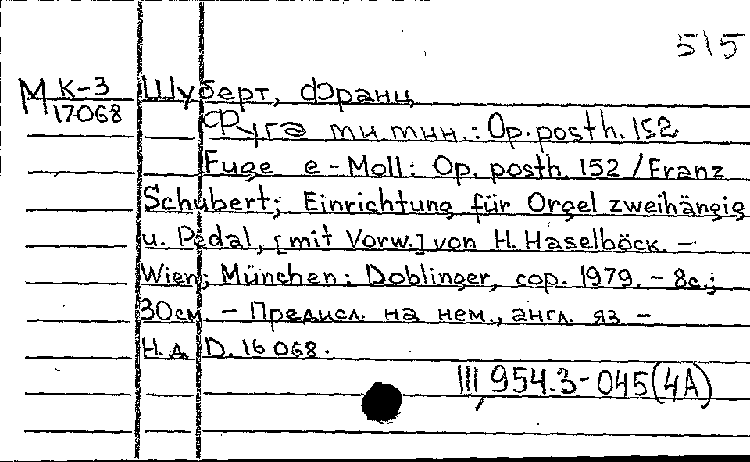 515
М К-3 Шуберт, Франц
17068
Фуга ми мин.: Op. posth. 152
Fuge e-Moll: Op. posth. 152 / Franz
Schubert; Einrichtung für Orgel zweihängig
u. Pedal, [mit Vorw.] von H. Haselböck. –
Wien; München: Doblinger, cop. 1979. – 8с.;
30см. – Предисл. на нем., англ. яз –
Н.д. D. 16 068.
III, 954.3-045(4А)